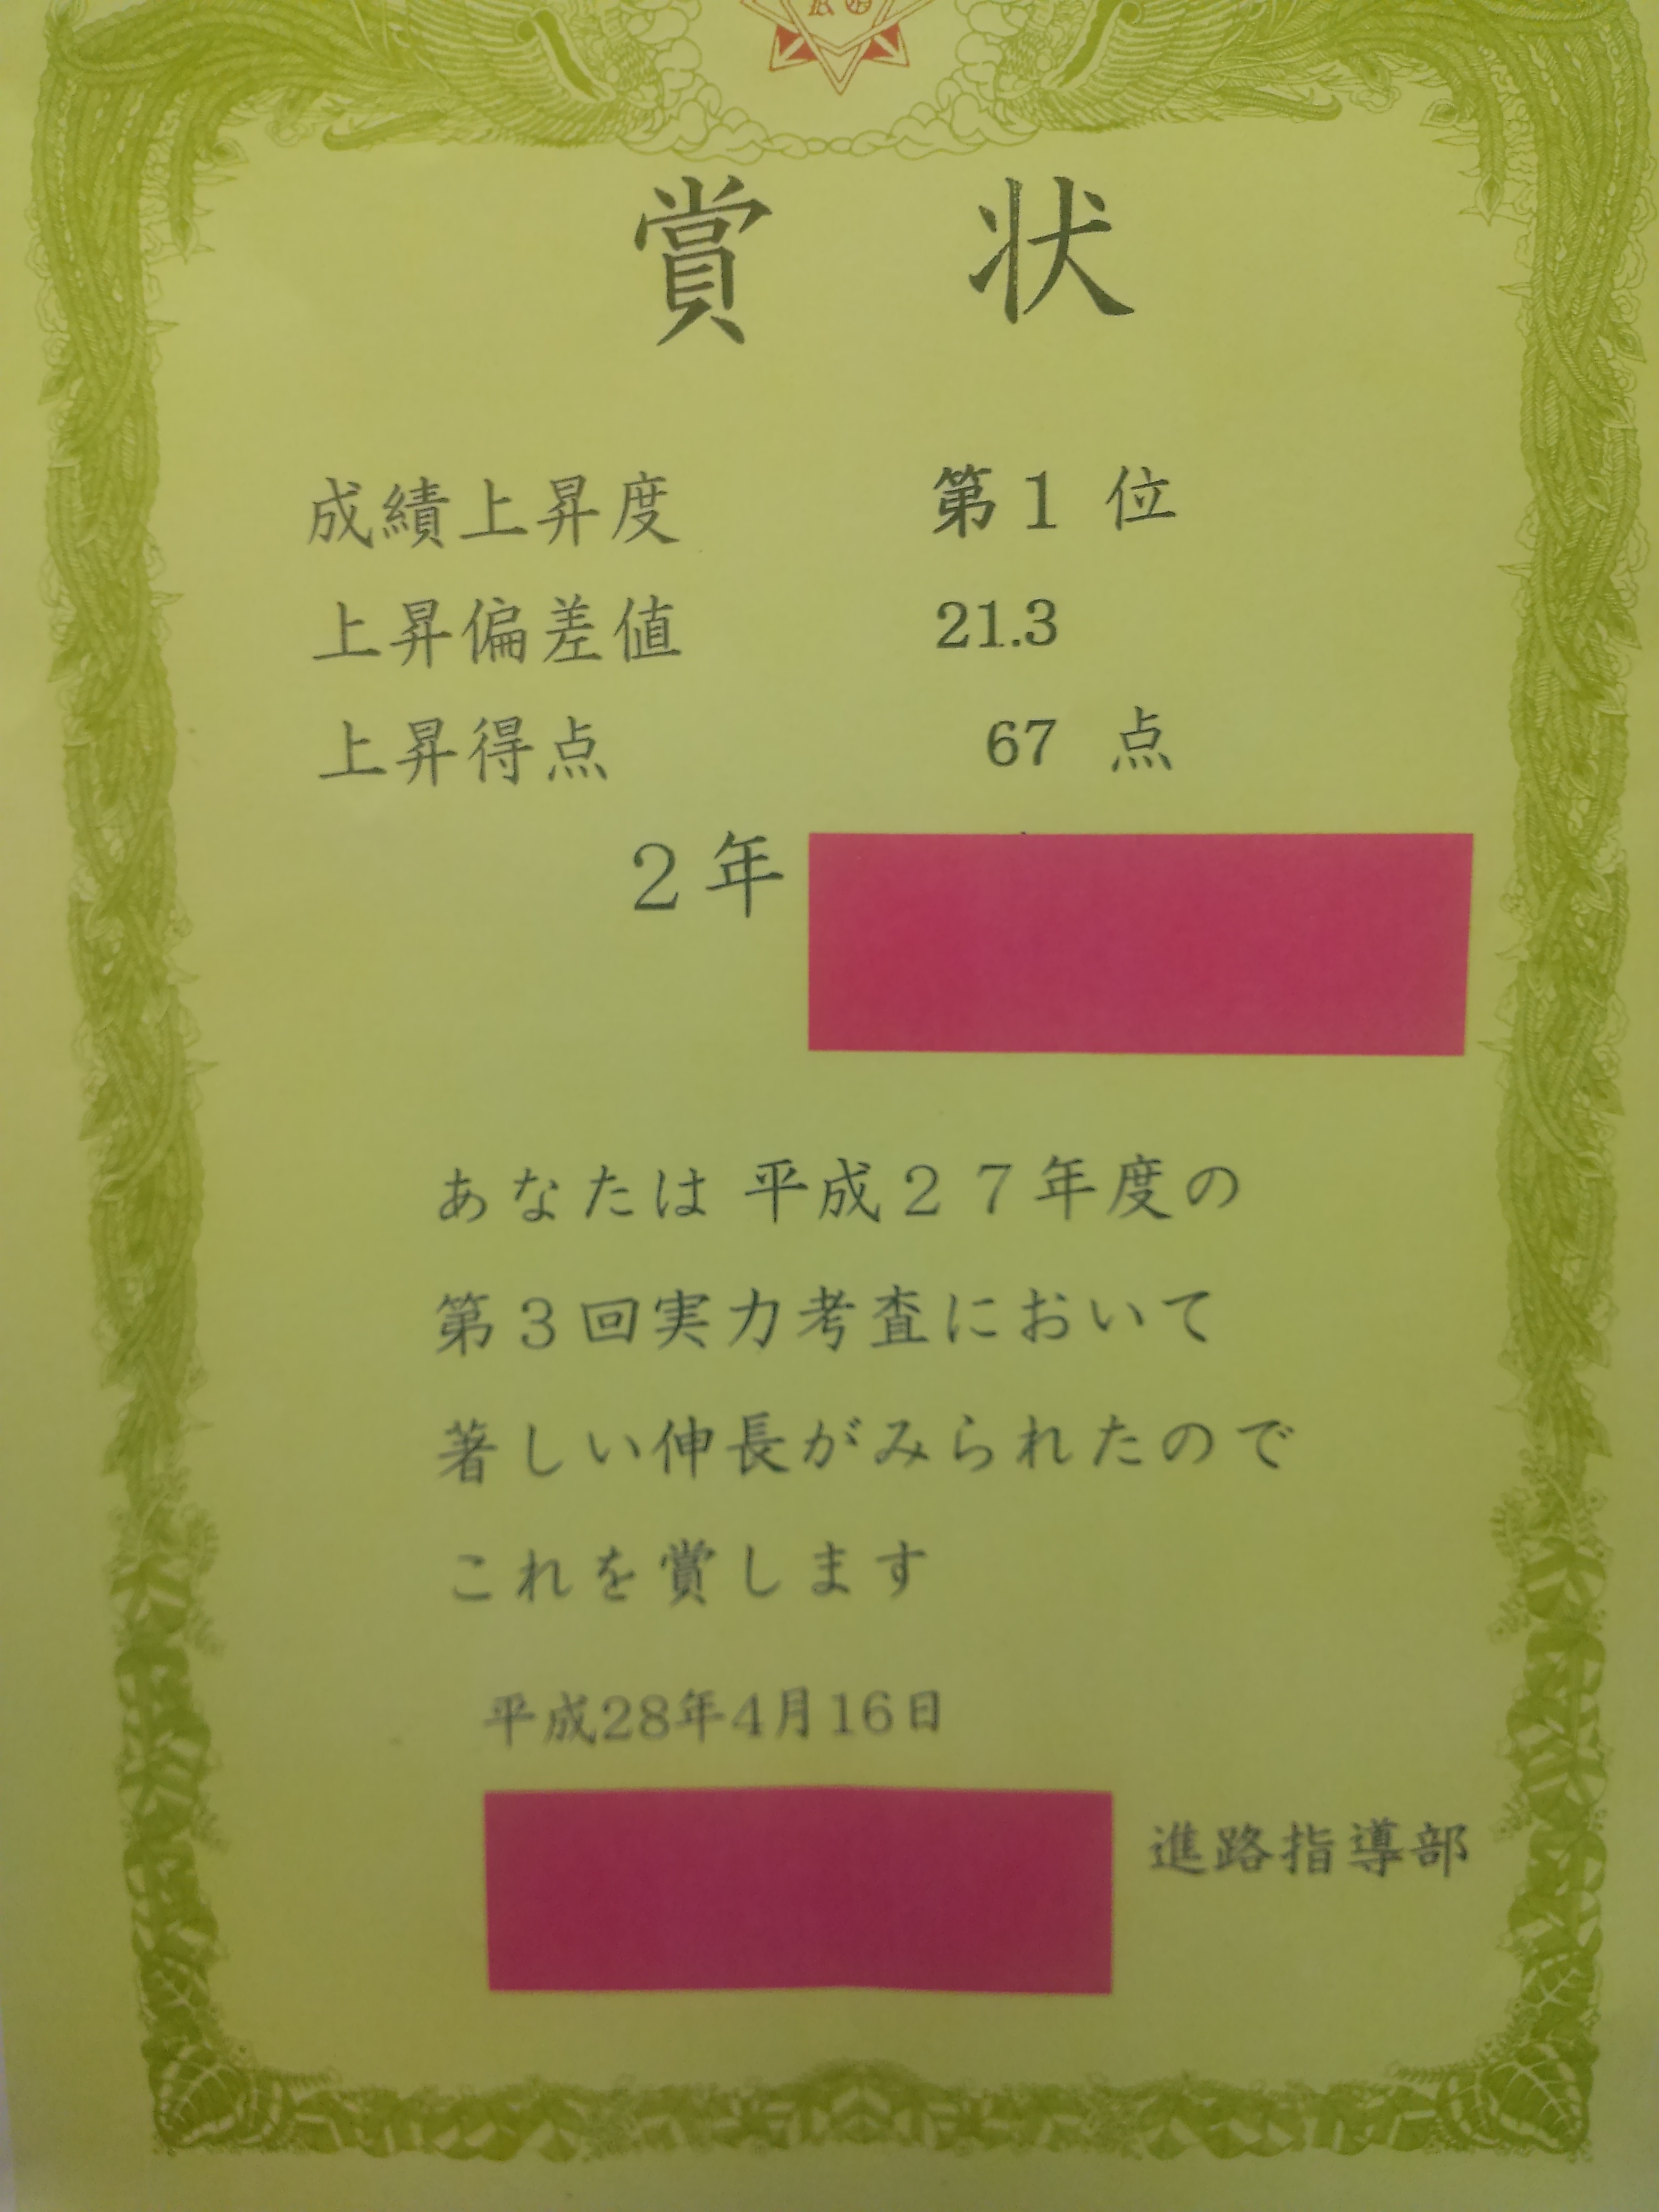 賞状
成績上昇度 第1位
上昇偏差値 21.3
上昇得点 67点
2年
あなたは 平成27年度の
第3回実力考査において
著しい伸長がみられたので
これを賞します
平成28年4月16日
進路指導部